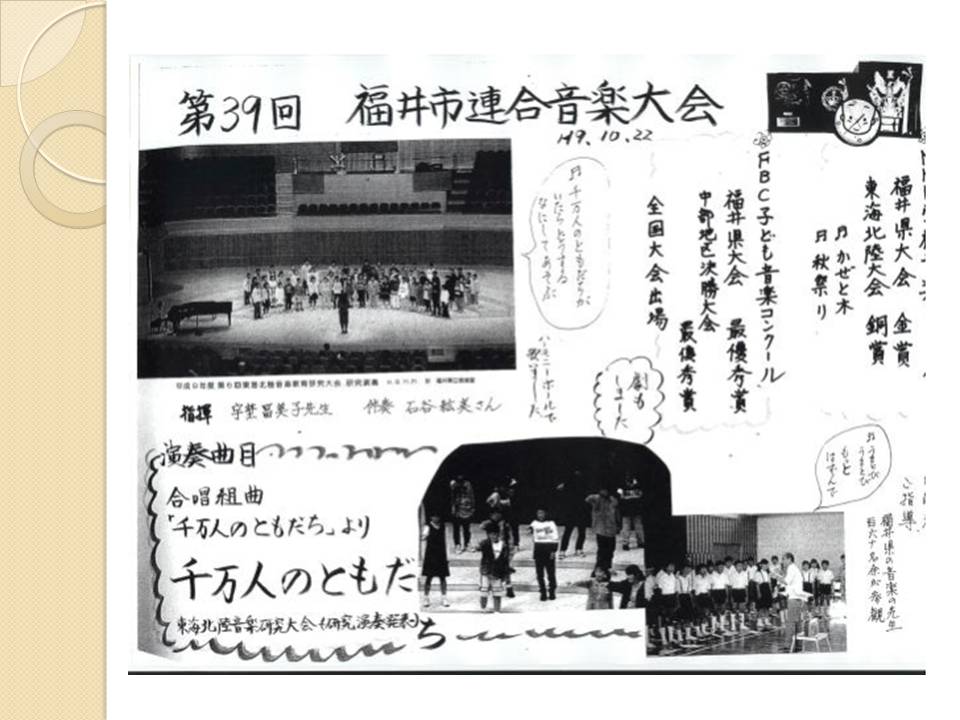 第39回 福井市連合音楽大会
H9.10.22
福井県大会 金賞
東海北陸大会 銅賞
♬ かぜと木
♬ 秋祭り
FBC子ども音楽コンクール
福井県大会 最優秀賞
中部地区決勝大会
最優秀賞
全国大会出場
♬ 千万人のともだちが
いたらどうする
なにしてあそぶ
ハーモニーホールで
歌いました
劇も
しました
平成9年度 第6回東海北陸音楽教育研究大会 研究演奏
指揮 宇埜富美子先生 伴奏 石谷絵美さん
演奏曲目
合唱組曲
「千万人のともだち」より
千万人のともだち
東海北陸音楽研究大会(研究演奏発表)
♬ うまとび
うまとび
もっと
はずんで
ご指導
福井県の音楽の先生
百六十名余が参観